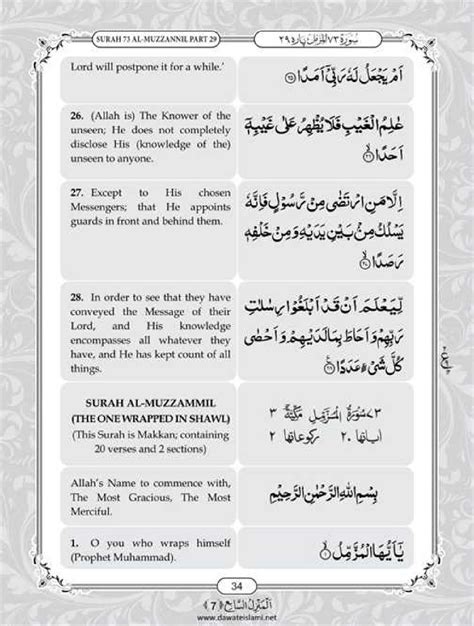 SURAH 73 AL-MUZZANNIL PART 29
سُوْرَة ٧٣ اَلْمُزَّمِّل پَارَه ٢٩
Lord will postpone it for a while.’
اَمْ يَجْعَلُ لَهٗ رَبِّيْۤ اَمَدًا ﴿٢٥﴾
26. (Allah is) The Knower of the
unseen; He does not completely
disclose His (knowledge of the)
unseen to anyone.
عٰلِمُ الْغَيْبِ فَلَا يُظْهِرُ عَلٰى غَيْبِهٖۤ
اَحَدًا ﴿٢٦﴾
27. Except to His chosen
Messengers; that He appoints
guards in front and behind them.
اِلَّا مَنِ ارْتَضٰى مِنْ رَّسُوْلٍ فَاِنَّهٗ
يَسْلُكُ مِنْۢ بَيْنِ يَدَيْهِ وَ مِنْ خَلْفِهٖ
رَصَدًا ﴿٢٧﴾
28. In order to see that they have
conveyed the Message of their
Lord, and His knowledge
encompasses all whatever they
have, and He has kept count of all
things.
لِّيَعْلَمَ اَنْ قَدْ اَبْلَغُوْا رِسٰلٰتِ
رَبِّهِمْ وَ اَحَاطَ بِمَا لَدَيْهِمْ وَ اَحْصٰى
كُلَّ شَیْءٍ عَدَدًا ﴿٢٨﴾
SURAH AL-MUZZAMMIL
(THE ONE WRAPPED IN SHAWL)
(This Surah is Makkan; containing
20 verses and 2 sections)
٧٣ سُوْرَةُ الْمُزَّمِّلِ مَكِّيَّةٌ ٣
اٰیاتها ٢٠ رکوعاتها ٢
Allah’s Name to commence with,
The Most Gracious, The Most
Merciful.
بِسْمِ اللّٰهِ الرَّحْمٰنِ الرَّحِيْمِ
1. O you who wraps himself
(Prophet Muhammad).
يٰۤاَيُّهَا الْمُزَّمِّلُ ﴿١﴾
34
اَلْمَنْزِلُ السَّابِع ﴿7﴾
www.dawateislami.net